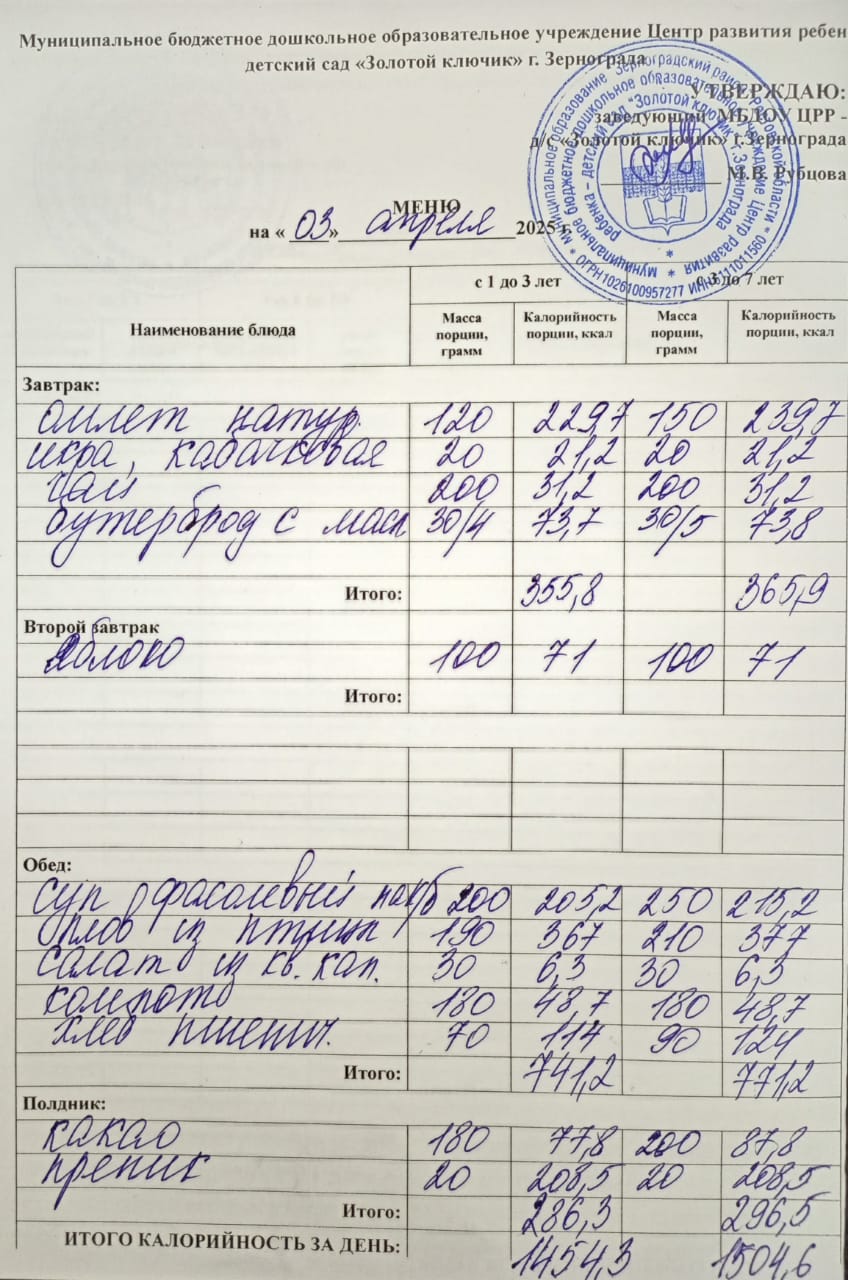 Муниципальное бюджетное дошкольное образовательное учреждение Центр развития ребен
детский сад «Золотой ключик» г. Зернограда
УТВЕРЖДАЮ:
заведующий МБДОУ ЦРР -
д/с «Золотой ключик» г.Зернограда
М.В. Рубцова
МЕНЮ
на « 03 » апреля 2025 г.
Наименование блюда с 1 до 3 лет с 3 до 7 лет
Масса порции, грамм Калорийность порции, ккал Масса порции, грамм Калорийность порции, ккал
Завтрак:
омлет натур. 120 229,7 150 239,7
икра, кабачковая 20 21,2 20 21,2
чай 200 31,2 200 31,2
бутерброд с масл 30/4 73,7 30/5 73,8
Итого: 355,8 365,9
Второй завтрак
Яблоко 100 71 100 71
Итого:
Обед:
суп фасолевый на к/б 200 205,2 250 215,2
плов из птицы 190 367 210 377
салат из кв. кап. 30 6,3 30 6,3
компот 180 48,7 180 48,7
хлеб пшенич. 70 114 90 124
Итого: 741,2 771,2
Полдник:
какао 180 77,8 200 87,8
пряник 20 208,5 20 208,5
Итого: 286,3 296,5
ИТОГО КАЛОРИЙНОСТЬ ЗА ДЕНЬ: 1454,3 1504,6
муниципальное образование "Зерноградский район" Ростовской области * ОГРН1026100957277 ИНН6111011560 *
муниципальное бюджетное дошкольное образовательное учреждение Центр развития
ребенка – детский сад "Золотой ключик" г. Зернограда